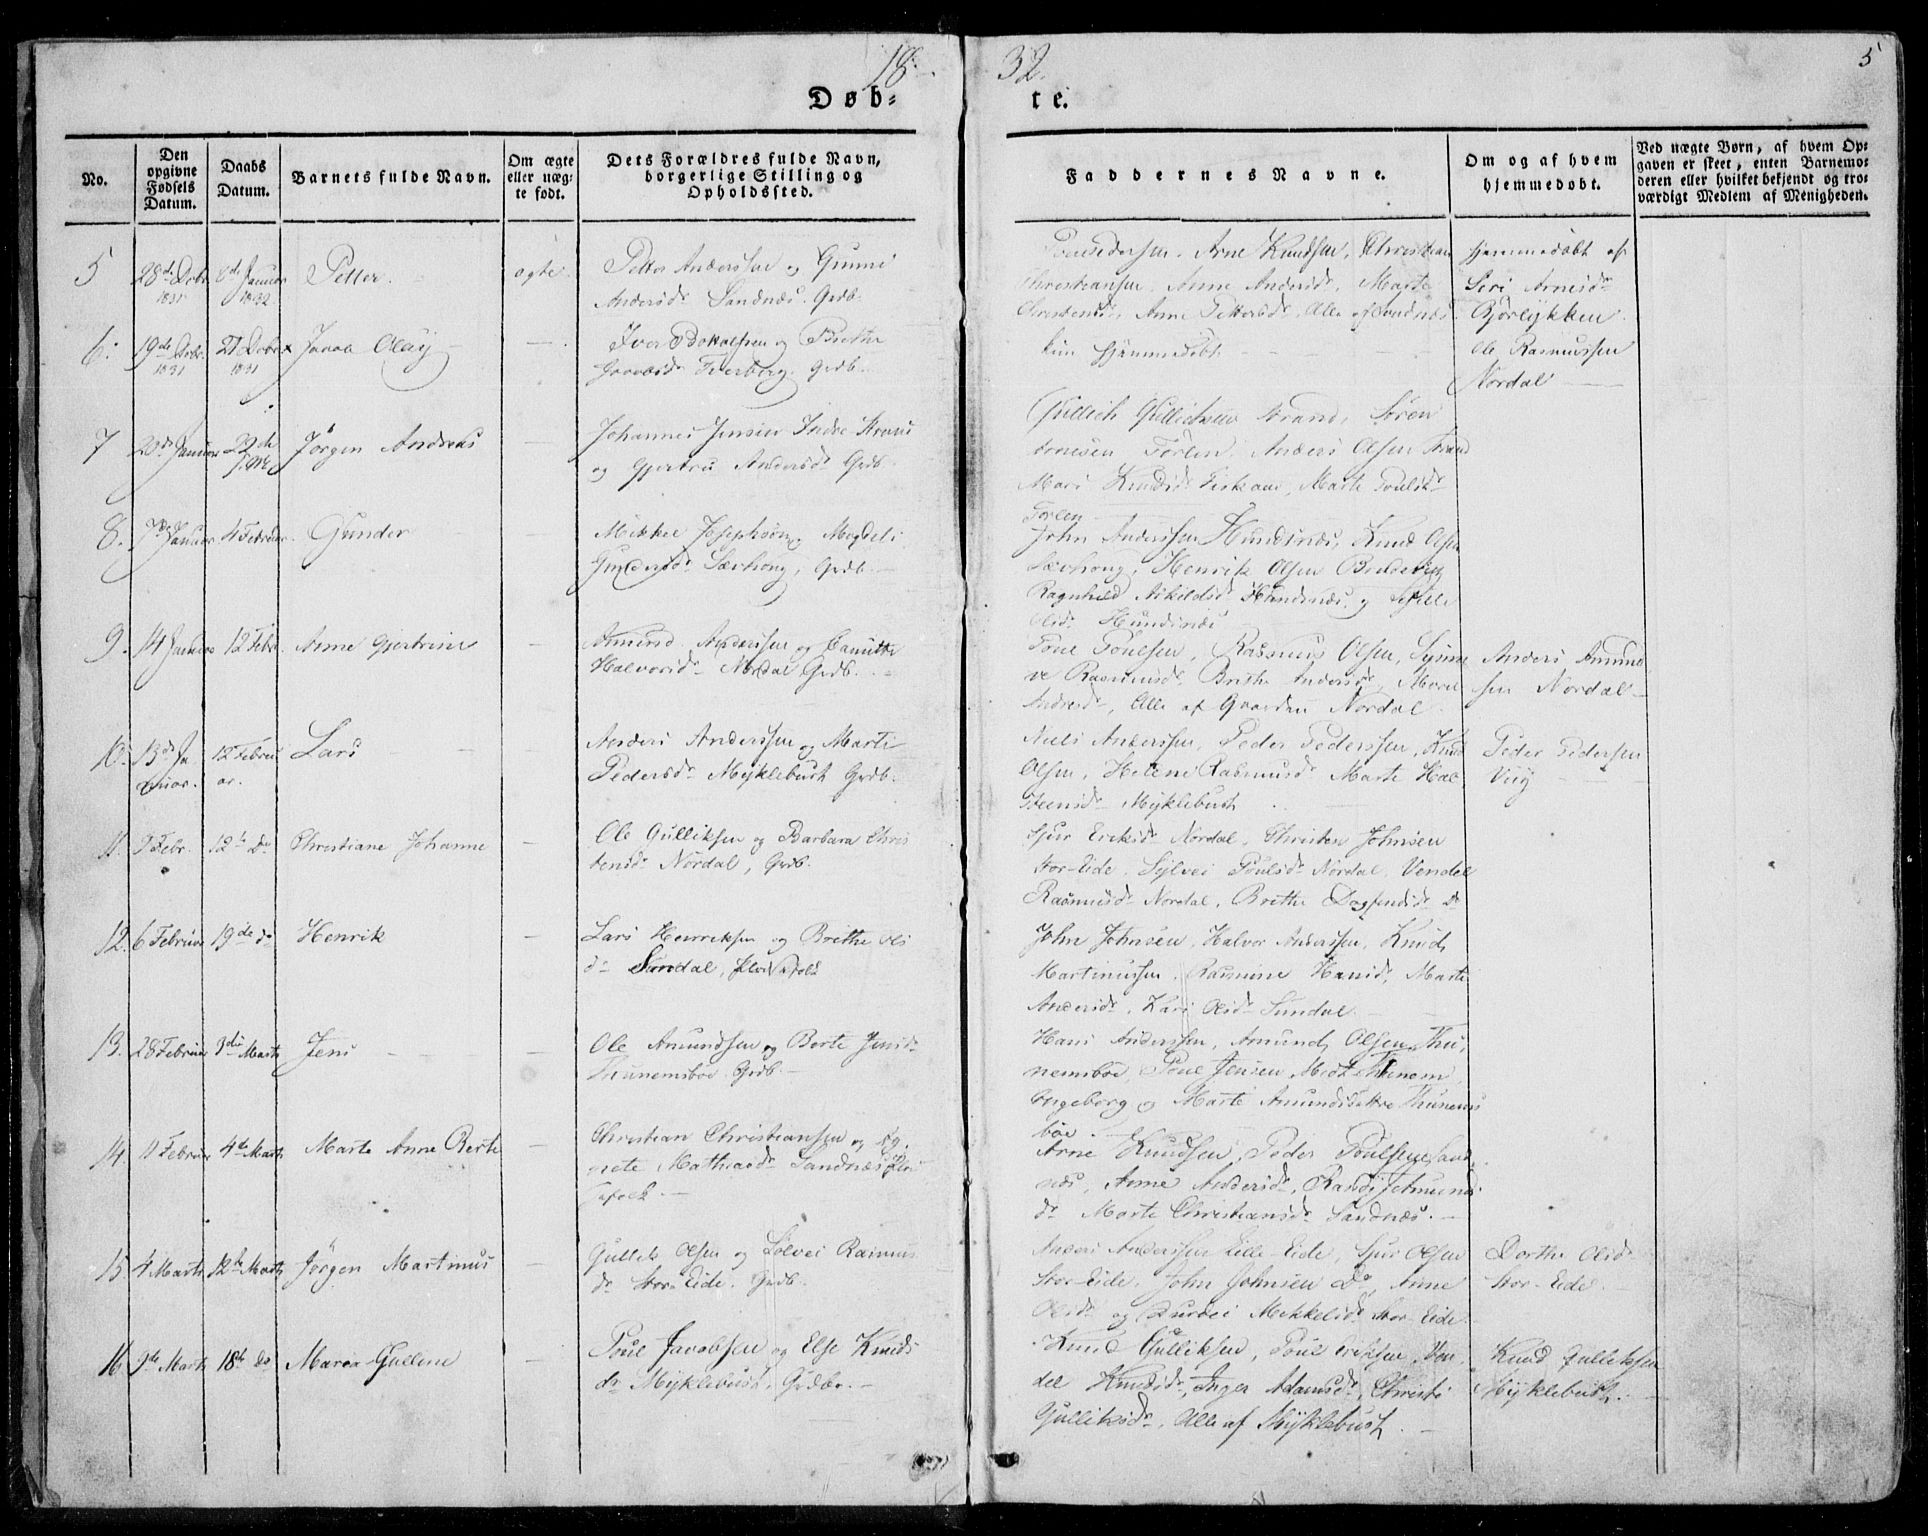 18 32.
5
Døb= te.
No.
Den opgivne Fødsels Datum.
Daabs Datum.
Barnets fulde Navn.
Om ægte eller uæg- te født.
Dets Forældres fulde Navn, borgerlige Stilling og Opholdssted.
Faddernes Navne.
Om og af hvem hjemmedøbt.
Ved uægte Børn, af hvem Op- gaven er skeet, enten Barnemo- deren eller hvilket bekjendt og tro- værdigt Medlem af Menigheden.
5 28de Debr 1831 Januar 1832 Petter ægte
Petter Anderssen og Gunni
Andersdr Sandnæs. Grdb.
Arne Knudsen, Christian
Christiansen, Anne Andersdr, Marte
Anne Pettersdr, Alle af Sandnæs
hjemmedøbt af
Siri Arnesdr
Bjørlykken
6. 19de Debr. 1831 27 Debr 1831 Jacob Olaij —
Iver og Brethe
Grdb.
hjemmedøbt
Ole Rasmussen
Nordal
7 20de Januar 22de Jørgen Andreas —
Johannes Jensen Indre Strand
og Gjertru Andersdr Grdb.
Gullich Gullichsen Strand, Søren
Arnesen Førlen, Anders Olsen Strand
Mari Knudsdr Marte Poulsdr
Førlen
8. Januar 4 Februar Gunder —
Mikkel Josephsøn og Magdeli
Gundersdr Sævhong, Grdb.
John Anderssen Hundsnæs, Knud Olsen
Sævhong, Henrik Olsen
Ragnhild Hundsnæs, og
Olsdr Hundsnæs
9. 14 Januar 12 Febr. Anne Gjertrine —
Amund Anderssen og
Halvorsdr Nordal Grdb.
Poul Poulsen, Rasmus Olsen, Synne
ve Rasmusdr, Brithe Andersdr,
Andersdr, Alle af Gaarden Nordal
Anders Amund
sen Nordal
10. 13de Ja
nuar. 12 Febru
ar. Lars —
Anders Anderssen og Marti
Pedersdr Myklebust Grdb.
Niels Anderssen, Peder Pederssen, Knud
Olsen, Helene Rasmusdr Marte Hal
steensdr Myklebust
Peder Pedersen
Viig
11. 9 Febr. 12te do Christiane Johanne —
Ole Gulliksen og Barbara Chris
tensdr Nordal, Grdb.
Sjur Nordal, Christen Johnsen
Stor-Eide, Sylvei Poulsdr Nordal, Vendel
Rasmusdr Nordal, Brithe Dagfindsdr Do
12. 6 Februar 19de do Henrik —
Lars Henriksen og Brethe Ols
dr Sundal,
John Johnsen, Halvor Anderssen, Knud
Martinussen, Rasmine Hansdr, Marte
Andersdr, Kari Olsdr Sundal
13. 28 Februar 3die Marts Jens —
Ole Amundsen og Berte Jensdr
Thunemsbøe. Grdb.
Hans Anderssen, Amund Olsen Thu
nemsbøe, Poul Jensen Thunem
Ingeborg og Marte Amundsdøttre Thunems
bøe.
14. 11 Februar 4de Marts Marte Anne Berte —
Christian Christiansen og
Mathiasdr Sandnæs
Arne Knudsen, Peder Poulsen Sand
næs, Anne Andersdr, Randi
dr Marte Christiansdr Sandnæs.
15. 4 Marts 12te Marts Jørgen Martinus —
Gullik Olsen og Sølvei Rasmus
dr Stor-Eide. Grdb.
Anders Anderssen Lille-Eide, Sjur Olsen
Stor-Eide, John Johnsen Do, Anne
Olsdr og Durdei Mekkelsdr Stor-Eide
Dorthe Olsdr
Stor-Eide.
16 9de Marts 18de do Maren Gullene —
Poul Jacobsen og Else Knuds
dr Myklebust, Grdbr.
Knud Gulliksen, Poul Eriksen, Ven
del Knudsdr, Inger Adamsdr, Christi
Gulliksdr, Alle af Myklebust.
Knud Gulliksen
Myklebust.